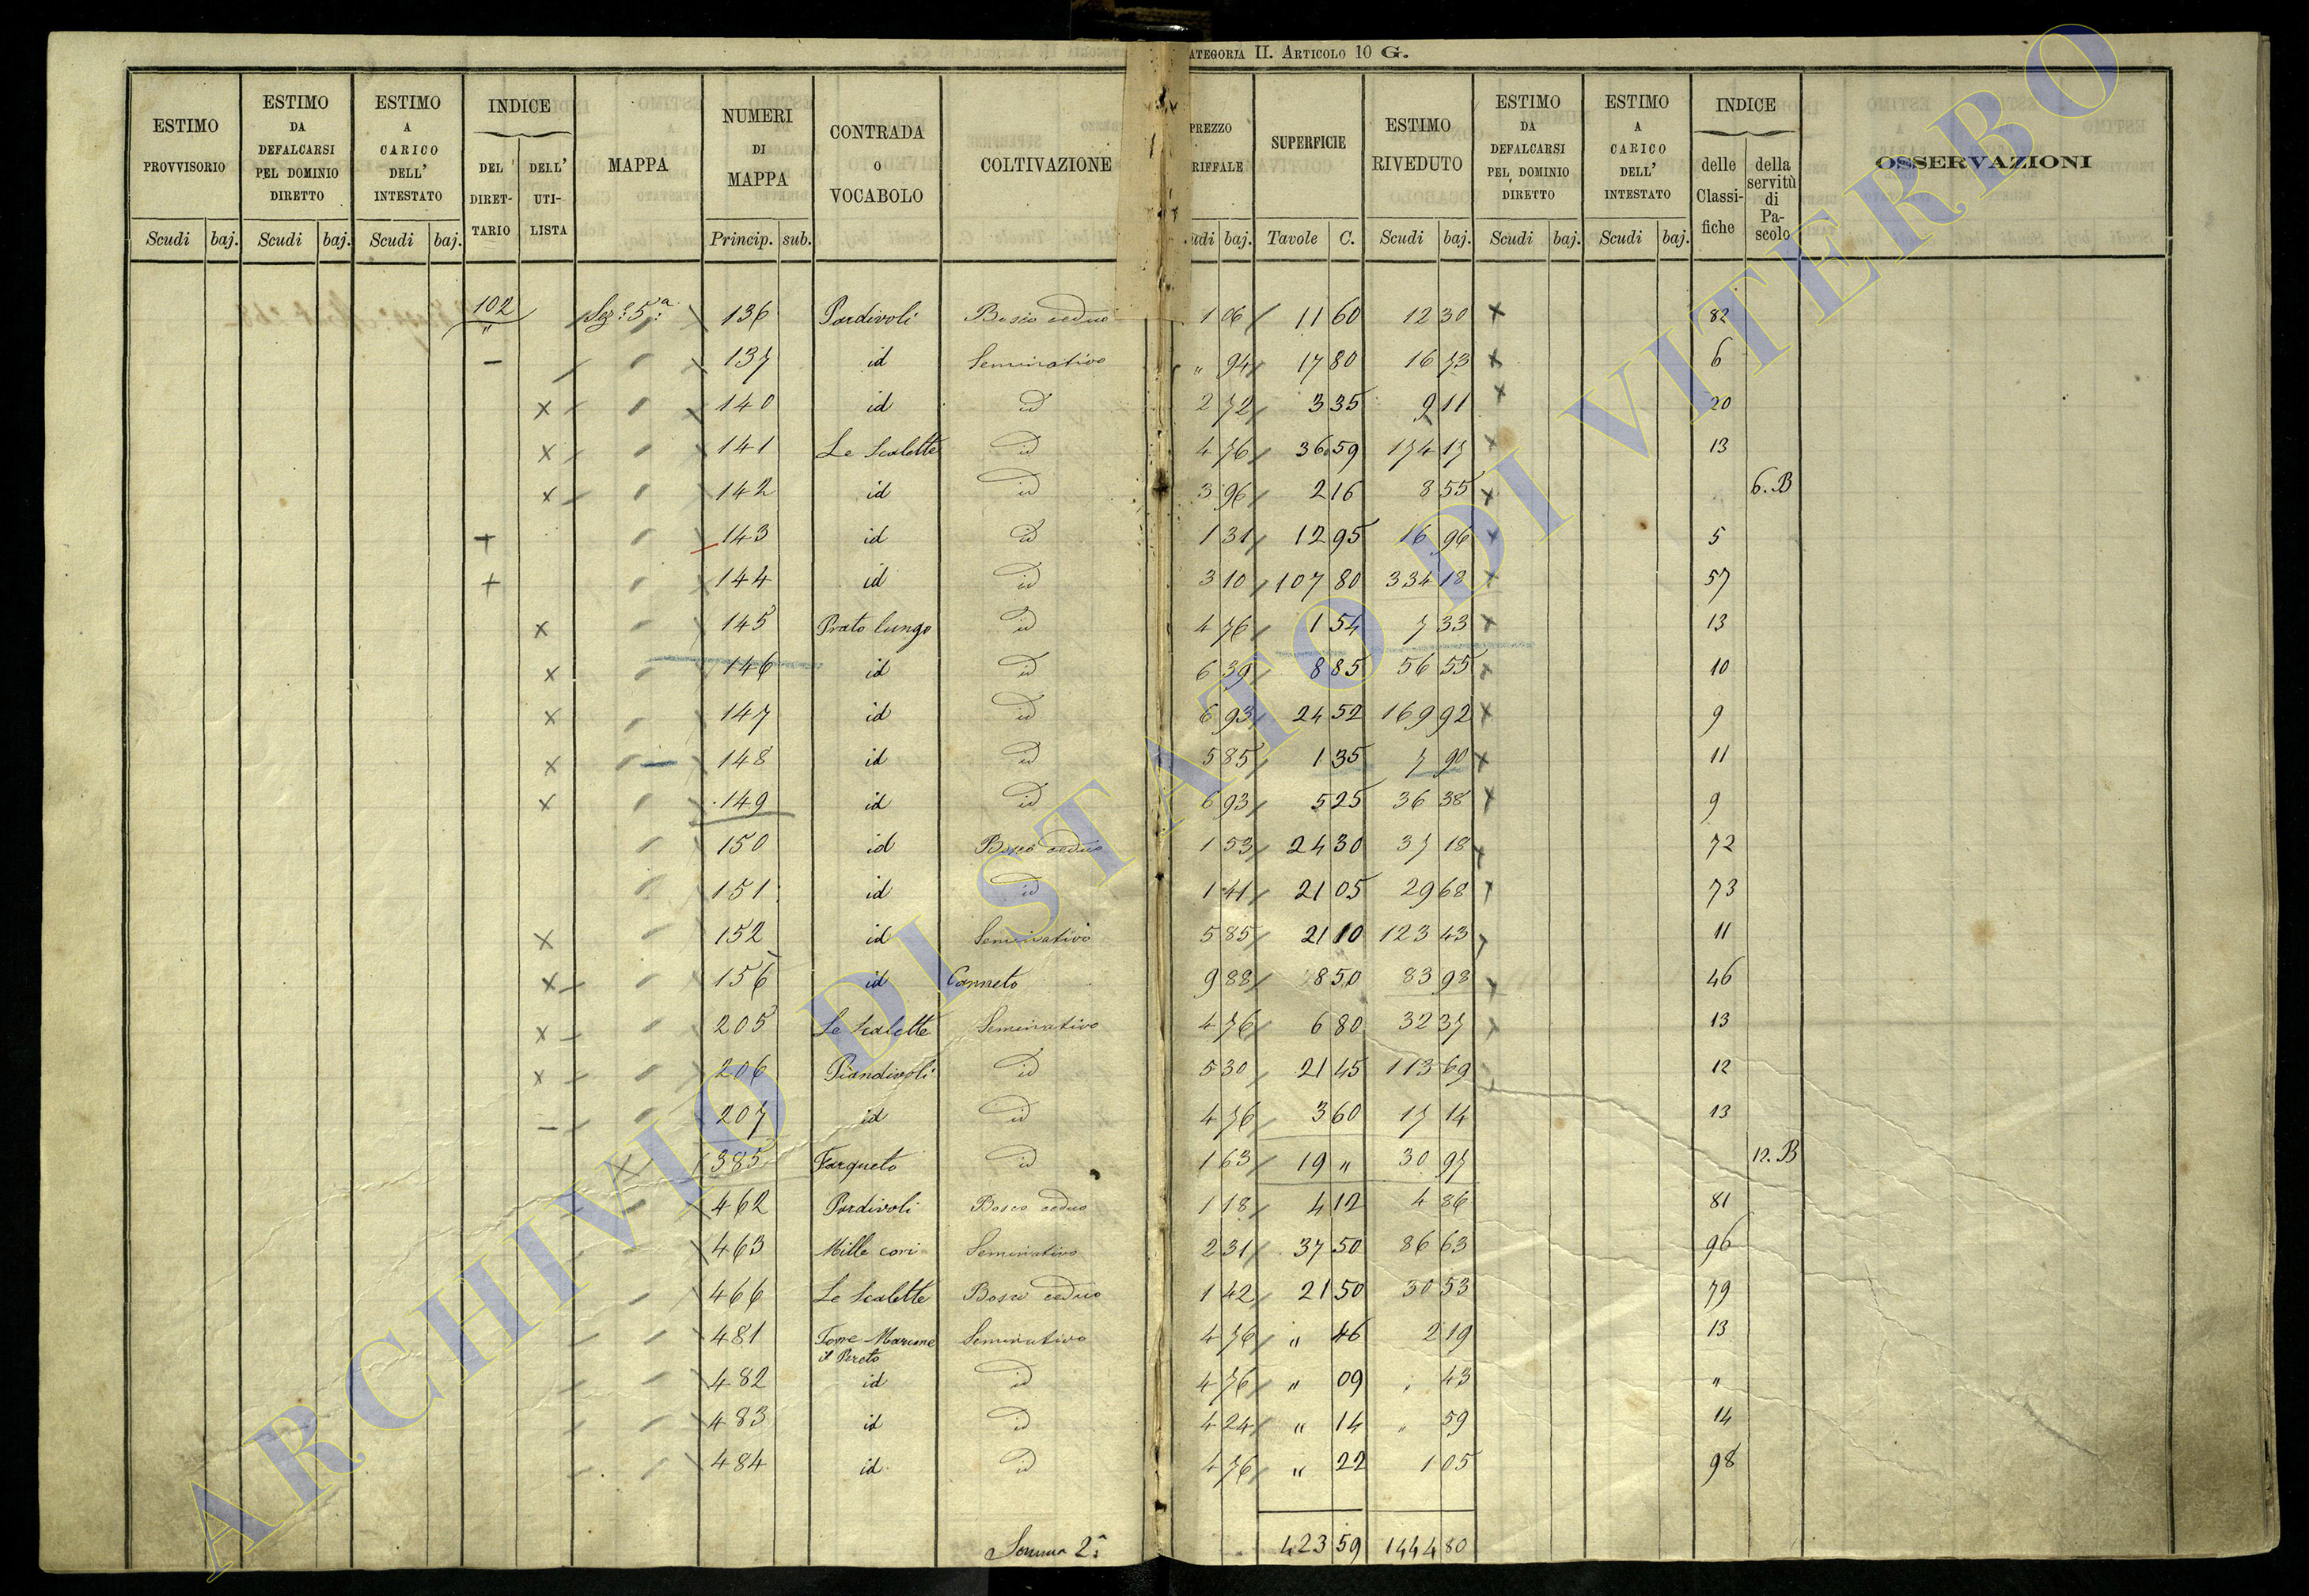 ATEGORIA II. ARTICOLO 10 G.
ESTIMO PROVVISORIO | ESTIMO DA DEFALCARSI PEL DOMINIO DIRETTO | ESTIMO A CARICO DELL' INTESTATO | INDICE DEL DIRETTARIO | DELL' UTILISTA | MAPPA | NUMERI DI MAPPA | CONTRADA O VOCABOLO | COLTIVAZIONE | PREZZO RIFFALE | SUPERFICIE | ESTIMO RIVEDUTO | ESTIMO DA DEFALCARSI PEL DOMINIO DIRETTO | ESTIMO A CARICO DELL' INTESTATO | INDICE delle Classifiche | della servitù di Pascolo | OSSERVAZIONI
Scudi baj. Scudi baj. Scudi baj. Princip. sub. udi baj. Tavole C. Scudi baj. Scudi baj. Scudi baj.
102 " Sez: 5ª 136 Pardivoli Bosco ceduo 1 06 11 60 12 30 × 82
– 137 id Seminativo " 94 17 80 16 73 × 6
× 140 id id 2 72 3 35 9 11 × 20
× 141 Le Scalette id 4 76 36 59 174 17 × 13
× 142 id id 3 96 2 16 8 55 × 6.B
+ 143 id id 1 31 12 95 16 96 × 5
+ 144 id id 3 10 107 80 334 18 × 57
× 145 Prato lungo id 4 76 1 54 7 33 × 13
× 146 id id 6 39 8 85 56 55 × 10
× 147 id id 6 93 24 52 169 92 × 9
× 148 id id 5 85 1 35 7 90 × 11
× 149 id id 6 93 5 25 36 38 × 9
150 id Bosco ceduo 1 53 24 30 37 18 × 72
151 id id 1 41 21 05 29 68 73
× 152 id Seminativo 5 85 21 10 123 43 11
× 156 id Canneto 9 88 8 50 83 98 46
× 205 Le Scalette Seminativo 4 76 6 80 32 37 13
× 206 Piandivoli id 5 30 21 45 113 69 12
– 207 id id 4 76 3 60 17 14 13
× 385 Farqueto id 1 63 19 " 30 97 12.B
462 Pardivoli Bosco ceduo 1 18 4 12 4 86 81
463 Mille cori Seminativo 2 31 37 50 86 63 96
466 Le Scalette Bosco ceduo 1 42 21 50 30 53 79
481 Torre Marcone Seminativo 4 76 " 46 2 19 13
il Pereto
482 id id 4 76 " 09 " 43 "
483 id id 4 24 " 14 " 59 14
484 id id 4 76 " 22 1 05 98
Somma 2ª 423 59 1444 80
ARCHIVIO DI STATO DI VITERBO